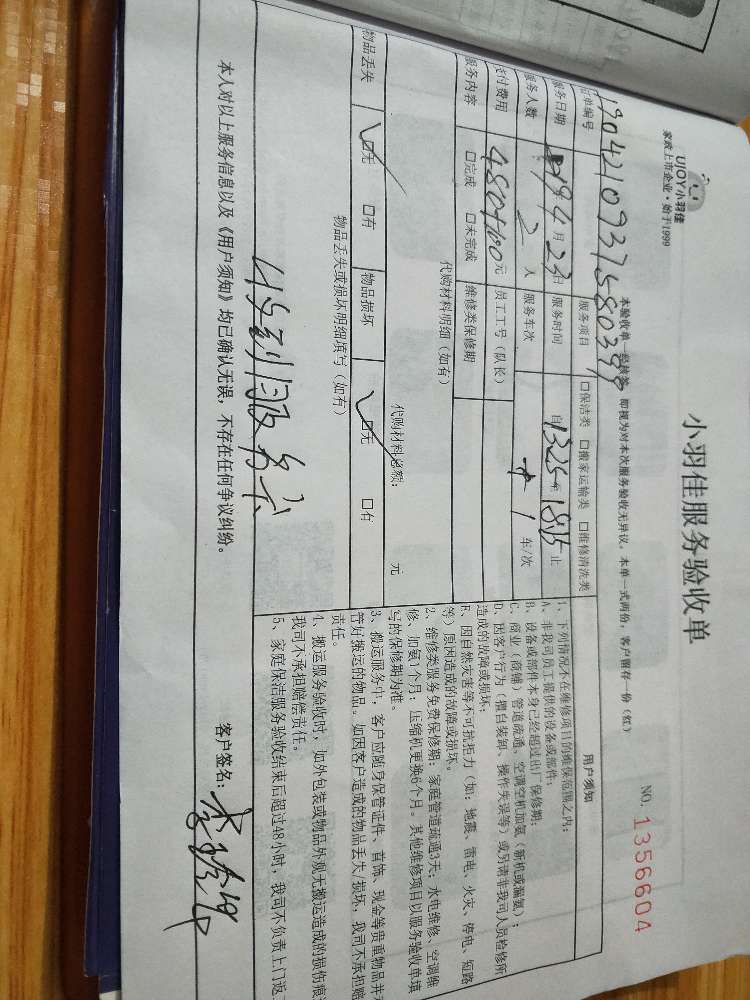 UJOY小羽佳
家政上市企业·始于1999
小羽佳服务验收单
NO. 1356604
本验收单一经核签，即视为对本次服务验收无异议。本单一式两份，客户留存一份（红）
单编号 服务项目 □保洁类 □搬家运输类 □维修清洗类
服务日期 19年4月23日 服务时间 自1325至1815止
服务人数 2人 服务车次 1车/次
支付费用 480+100元 员工工号（队长）
服务内容 □完成 □未完成 维修类保修期
代购材料明细（如有）
代购材料总额： 元
物品丢失 □无 □有 物品损坏 □无 □有
物品丢失或损坏明细填写（如有）
用户须知
1、下列情况不在维修项目的维保范围之内：
A、非我司员工提供的设备或部件；
B、设备或部件本身已经超过出厂保修期；
C、商业（商铺）管道疏通、空调空机加氨（新机或漏氨）；
D、因客户行为（擅自装卸、操作失误等）或另请非我司人员检修所
造成的故障或损坏；
E、因自然灾害等不可抗拒力（如：地震、雷电、火灾、停电、短路
等）原因造成的故障或损坏。
2、维修类服务免费保修期：家庭管道疏通3天；水电维修、空调维
修、加氨1个月；压缩机更换6个月。其他维修项目以服务验收单填
写的保修期为准。
3、搬运服务中，客户应随身保管证件、首饰、现金等贵重物品并
管好搬运的物品。如因客户造成的物品丢失/损坏，我司不承担赔
责任。
4、搬运服务验收时，如外包装或物品外观无搬运造成的损伤痕
我司不承担赔偿责任。
5、家庭保洁服务验收结束后超过48小时，我司不负责上门返
本人对以上服务信息以及《用户须知》均已确认无误，不存在任何争议纠纷。
客户签名：